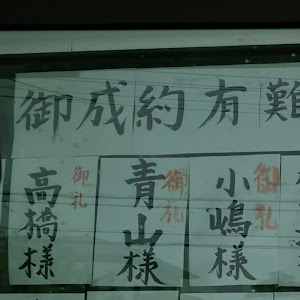 御成約有難
御礼
高橋様
御礼
青山様
御礼
小嶋様